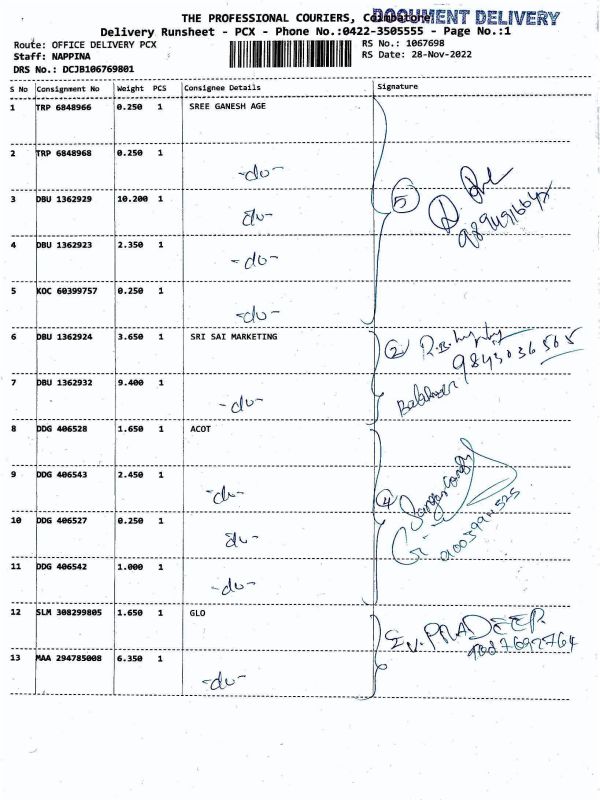 THE PROFESSIONAL COURIERS, Coimbatore
DOCUMENT DELIVERY
Delivery Runsheet - PCX - Phone No.:0422-3505555 - Page No.:1
Route: OFFICE DELIVERY PCX RS No.: 1067698
Staff: NAPPINA RS Date: 28-Nov-2022
DRS No.: DCJB106769801
S No Consignment No Weight PCS Consignee Details Signature
1 TRP 6848966 0.250 1 SREE GANESH AGE
2 TRP 6848968 0.250 1 -do-
3 DBU 1362929 10.200 1 -do- 5
4 DBU 1362923 2.350 1 -do-
5 KOC 60399757 0.250 1 -do-
6 DBU 1362924 3.650 1 SRI SAI MARKETING 2 R.B.
9843036505
7 DBU 1362932 9.400 1 -do-
8 DDG 406528 1.650 1 ACOT
9 DDG 406543 2.450 1 -do- 4
10 DDG 406527 0.250 1 -do-
11 DDG 406542 1.000 1 -do-
12 SLM 308299805 1.650 1 GLO PRADEEP
13 MAA 294785008 6.350 1 -do-